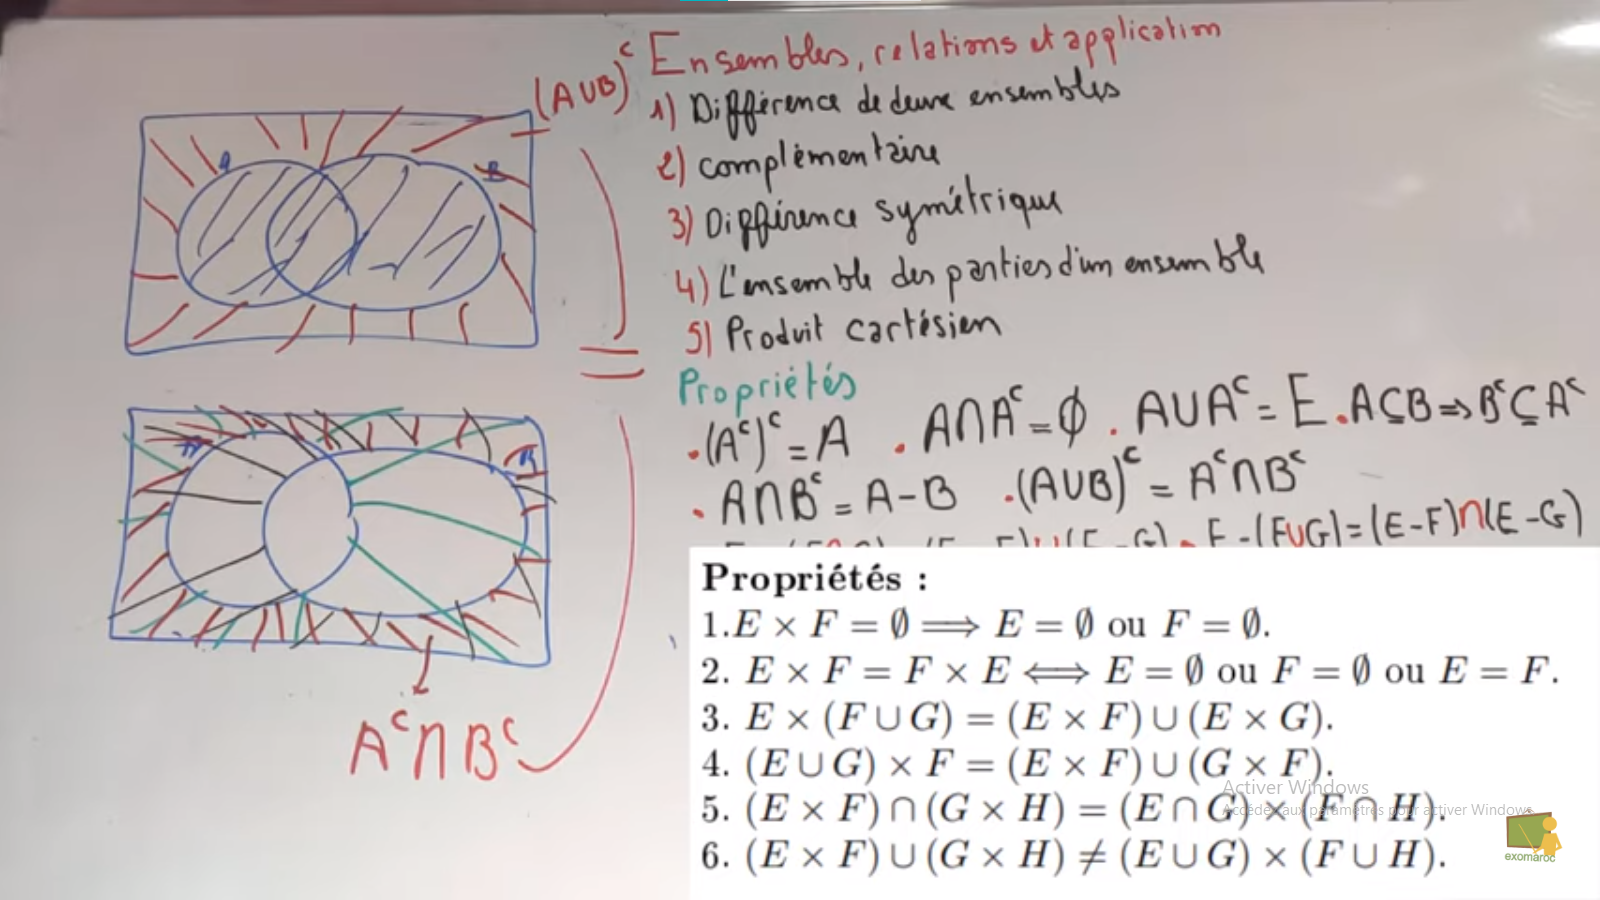 Ensembles, relations et application
(A∪B)ᶜ
1) Différence de deux ensembles
2) complémentaire
3) Différence symétrique
4) L'ensemble des parties d'un ensemble
5) Produit cartésien
Propriétés
• (Aᶜ)ᶜ = A • A∩Aᶜ = ∅ • A∪Aᶜ = E • A⊆B ⇒ Bᶜ⊆Aᶜ
• A∩Bᶜ = A-B • (A∪B)ᶜ = Aᶜ∩Bᶜ
• E-(F∪G)=(E-F)∩(E-G)
A
B
A
B
Aᶜ∩Bᶜ
Propriétés :
1.E × F = ∅ ⟹ E = ∅ ou F = ∅.
2. E × F = F × E ⟺ E = ∅ ou F = ∅ ou E = F.
3. E × (F ∪ G) = (E × F) ∪ (E × G).
4. (E ∪ G) × F = (E × F) ∪ (G × F).
5. (E × F) ∩ (G × H) = (E ∩ G) × (F ∩ H).
6. (E × F) ∪ (G × H) ≠ (E ∪ G) × (F ∪ H).
Activer Windows
Accédez aux paramètres pour activer Windows.
exomaroc